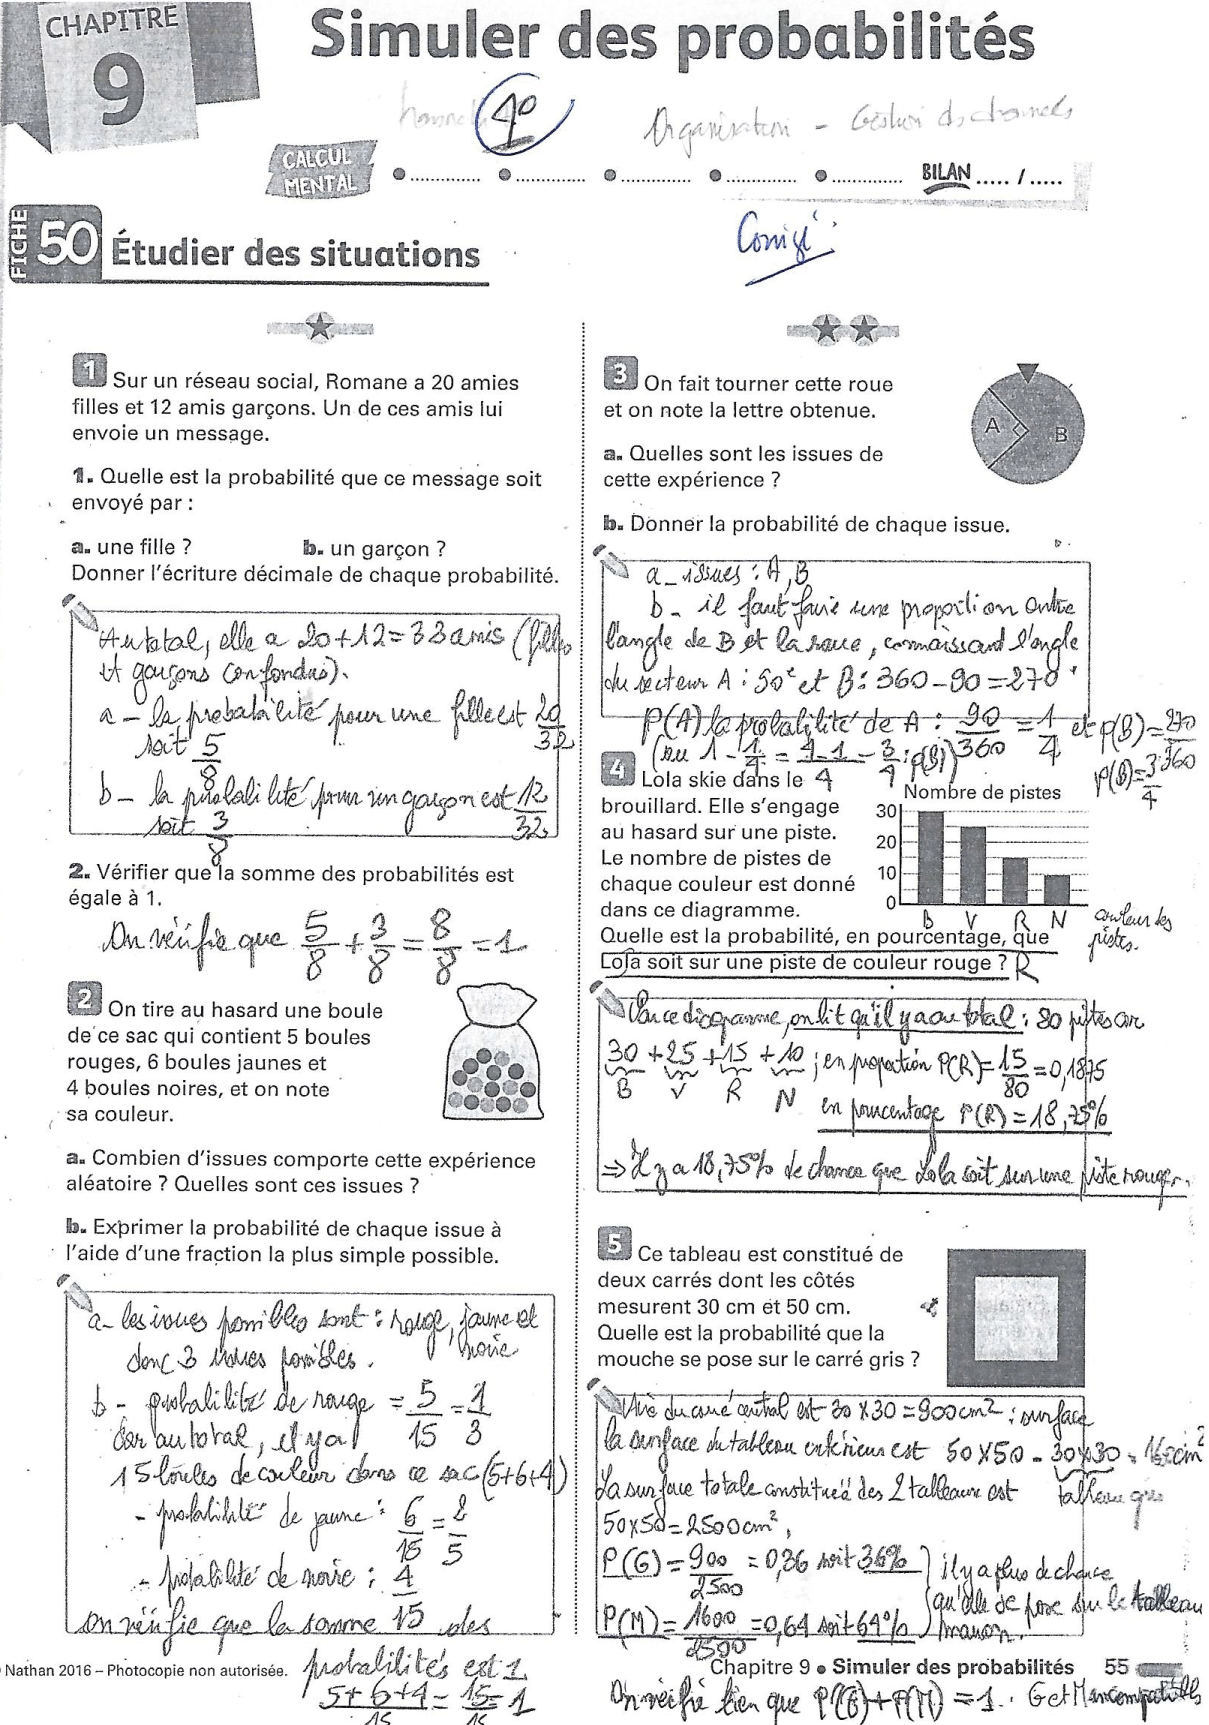 CHAPITRE
9
Simuler des probabilités
1°
Organisation - Gestion de données
CALCUL
MENTAL
BILAN ..... / .....
Corrigé
FICHE 50 Étudier des situations
1 Sur un réseau social, Romane a 20 amies
filles et 12 amis garçons. Un de ces amis lui
envoie un message.
1. Quelle est la probabilité que ce message soit
envoyé par :
a. une fille ? b. un garçon ?
Donner l'écriture décimale de chaque probabilité.
Au total, elle a 20+12=33 amis (filles
et garçons confondus).
a - la probabilité pour une fille est 20/32
soit 5/8
b - la probabilité pour un garçon est 12/32
soit 3/8
2. Vérifier que la somme des probabilités est
égale à 1.
On vérifie que 5/8 + 3/8 = 8/8 = 1
2 On tire au hasard une boule
de ce sac qui contient 5 boules
rouges, 6 boules jaunes et
4 boules noires, et on note
sa couleur.
a. Combien d'issues comporte cette expérience
aléatoire ? Quelles sont ces issues ?
b. Exprimer la probabilité de chaque issue à
l'aide d'une fraction la plus simple possible.
a- les issues possibles sont : rouge, jaune et
noire
donc 3 issues possibles.
b - probabilité de rouge = 5/15 = 1/3
car au total, il y a
15 boules de couleur dans ce sac (5+6+4)
- probabilité de jaune : 6/15 = 2/5
- probabilité de noire : 4/15
on vérifie que la somme des
probabilités est 1
5+6+4/15 = 15/15 = 1
Nathan 2016 – Photocopie non autorisée.
3 On fait tourner cette roue
et on note la lettre obtenue.
A B
a. Quelles sont les issues de
cette expérience ?
b. Donner la probabilité de chaque issue.
a - issues : A, B
b - il faut faire une proportion entre
l'angle de B et la roue, connaissant l'angle
du secteur A : 90° et B : 360-90=270°
P(A) la probabilité de A : 90/360 = 1/4 et P(B)=270/360
(ou 1 - 1/4 = 4-1/4 = 3/4 : P(B)) P(B)=3/4
4 Lola skie dans le
brouillard. Elle s'engage
au hasard sur une piste.
Le nombre de pistes de
chaque couleur est donné
dans ce diagramme.
Nombre de pistes
30
20
10
0
B V R N
couleur des
pistes.
Quelle est la probabilité, en pourcentage, que
Lola soit sur une piste de couleur rouge ? R
Sur ce diagramme, on lit qu'il y a au total : 80 pistes car
30 + 25 + 15 + 10 ; en proportion P(R)=15/80=0,1875
B V R N
en pourcentage P(R)=18,75%
⇒ Il y a 18,75% de chance que Lola soit sur une piste rouge.
5 Ce tableau est constitué de
deux carrés dont les côtés
mesurent 30 cm et 50 cm.
Quelle est la probabilité que la
mouche se pose sur le carré gris ?
Aire du carré central est 30×30=900cm² : surface
la surface du tableau extérieur est 50×50 - 30×30 =
tableau gris
La surface totale constituée des 2 tableaux est
50×50=2500cm²,
P(G)=900/2500 = 0,36 soit 36%
P(M)=1600/2500=0,64 soit 64%
il y a plus de chance
qu'elle se pose sur le tableau
marron.
On vérifie bien que P(G)+P(M)=1. G et M incompatibles
Chapitre 9 • Simuler des probabilités 55